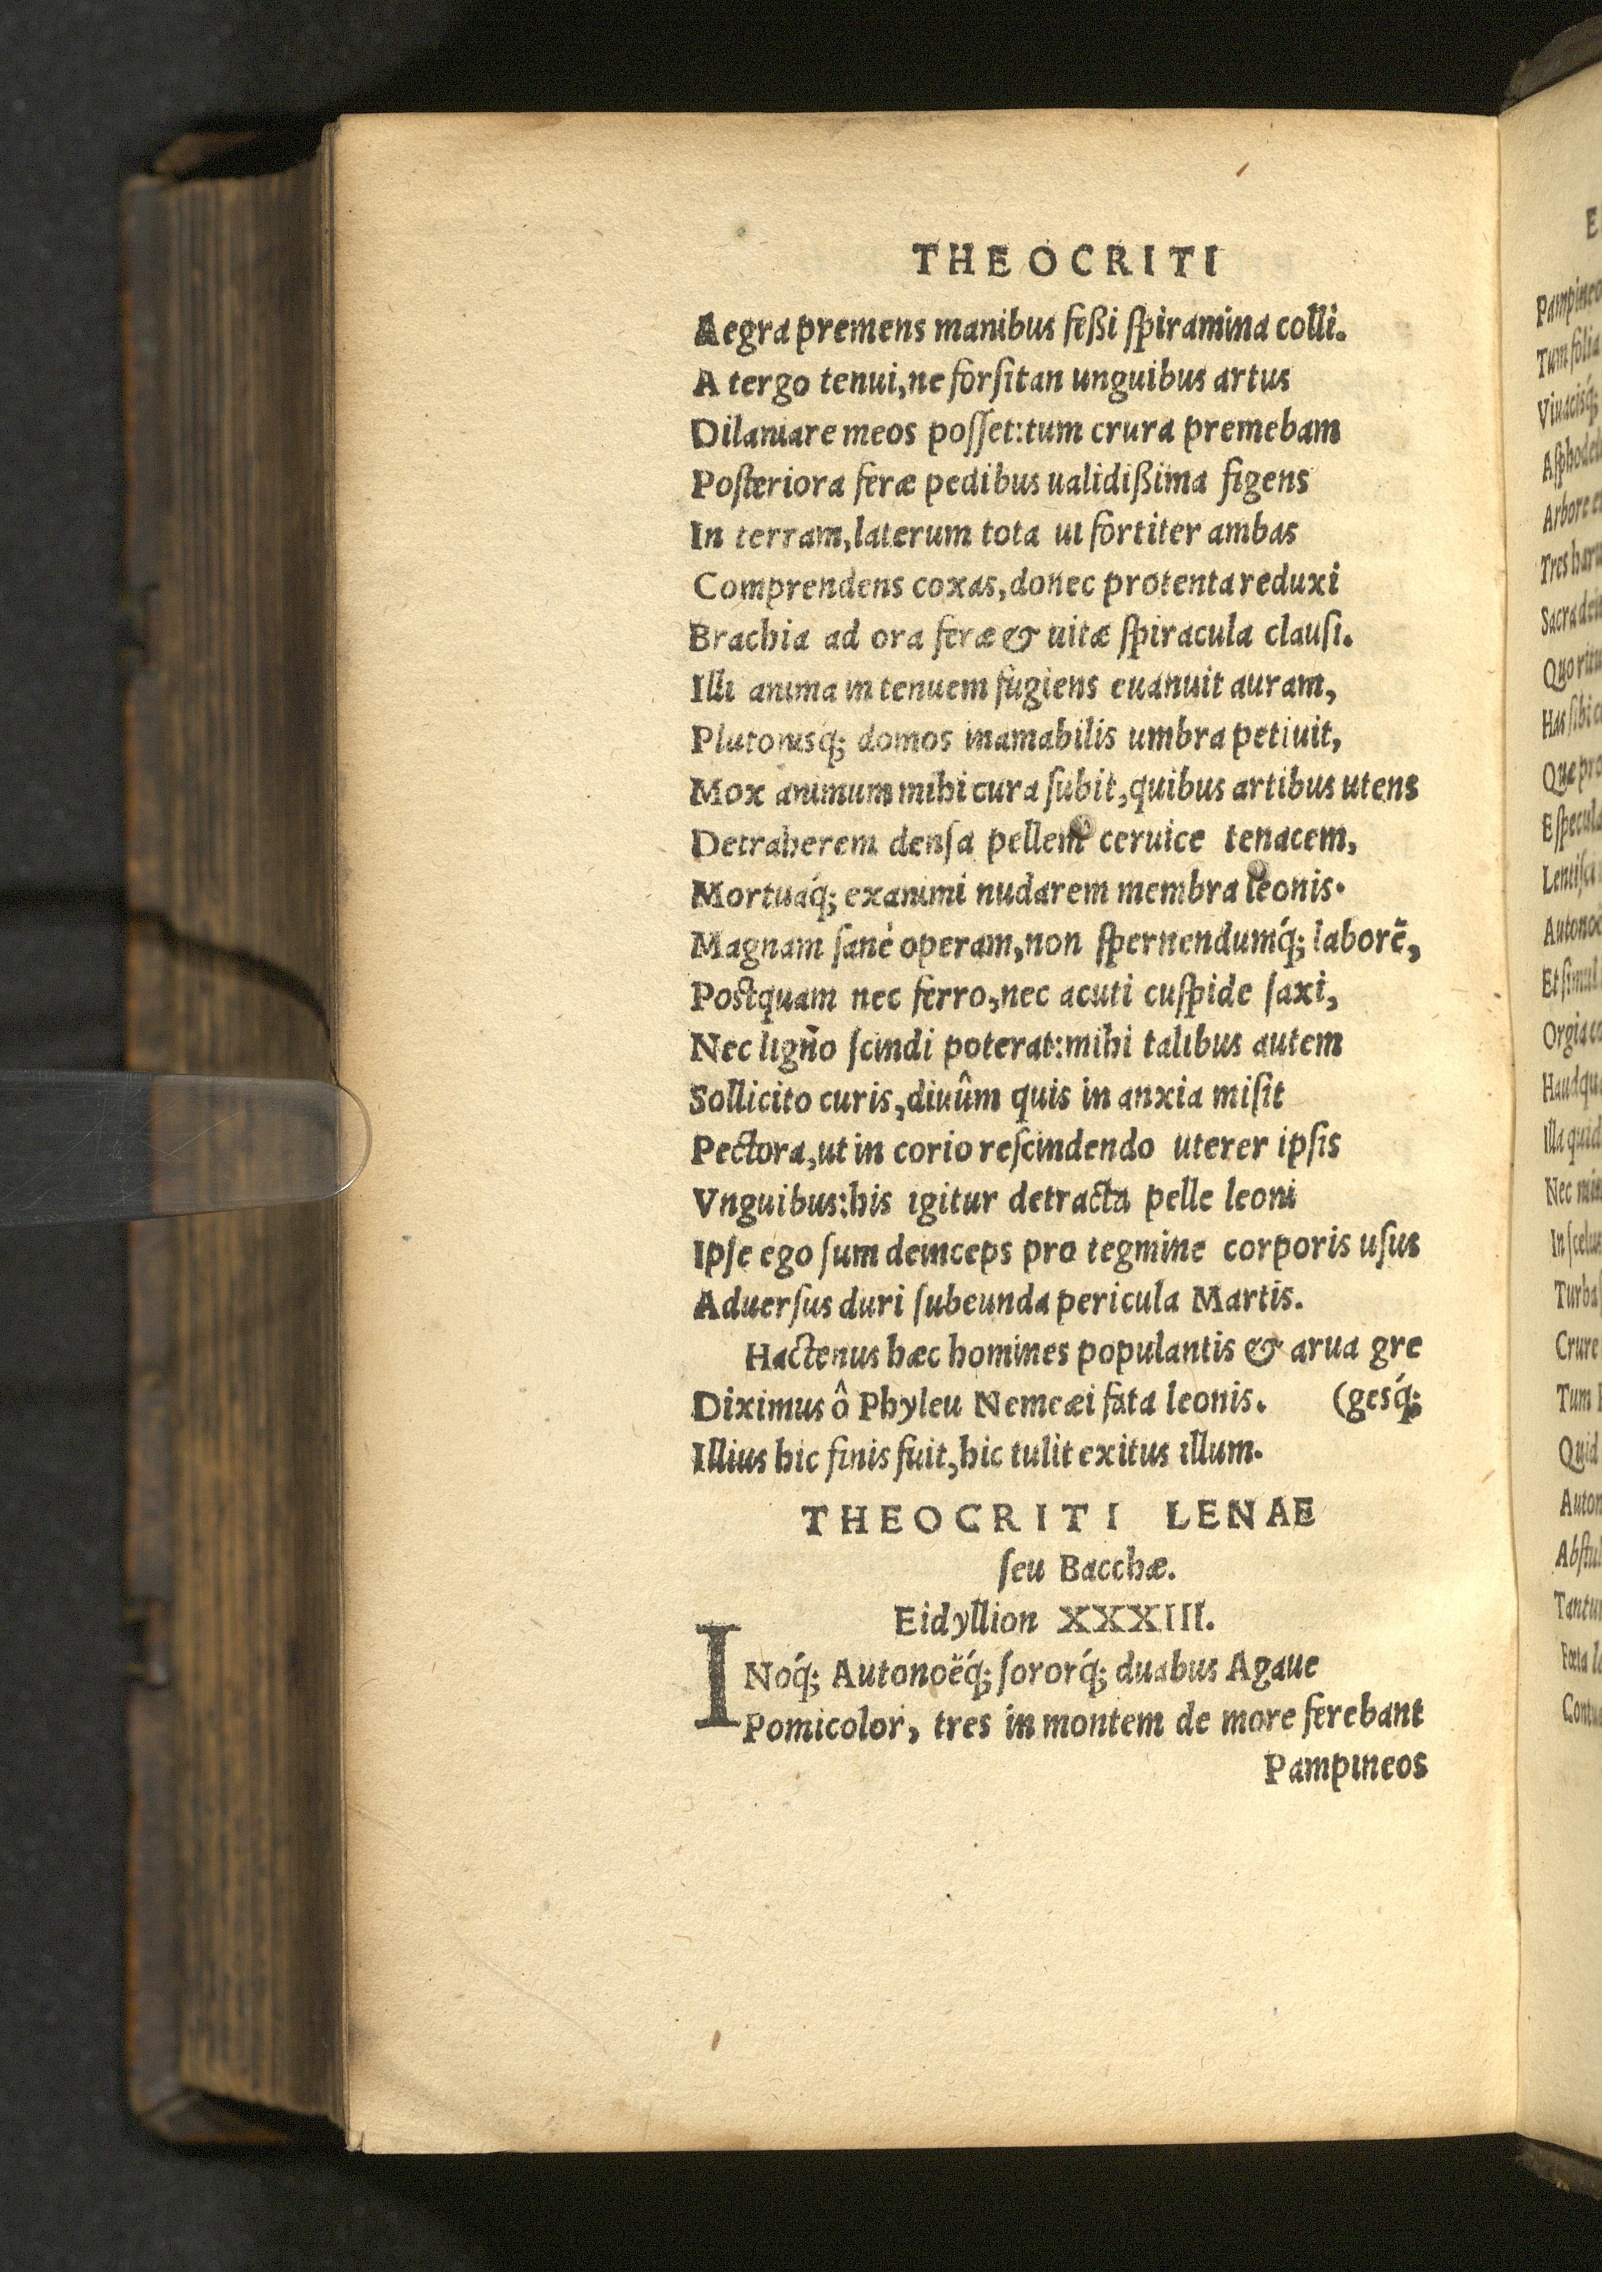 THEOCRITI
Aegra premens manibus feßi ſpiramina colli.
A tergo tenui, ne forſitan unguibus artus
Dilaniare meos poſſet: tum crura premebam
Poſteriora feræ pedibus ualidißima figens
In terram, laterum tota ui fortiter ambas
Comprendens coxas, donec protenta reduxi
Brachia ad ora feræ & uitæ ſpiracula clauſi.
Illi anima in tenuem fugiens euanuit auram,
Plutonisq́; domos inamabilis umbra petiuit,
Mox animum mihi cura ſubit, quibus artibus utens
Detraherem denſa pellem ceruice tenacem,
Mortuaq́; exanimi nudarem membra leonis.
Magnam ſanè operam, non ſpernendumq́; laborẽ,
Postquam nec ferro, nec acuti cuſpide ſaxi,
Nec ligño ſcindi poterat: mihi talibus autem
Sollicito curis, diuûm quis in anxia miſit
Pectora, ut in corio reſcindendo uterer ipſis
Vnguibus: his igitur detracta pelle leoni
Ipſe ego ſum deinceps pro tegmine corporis uſus
Aduerſus duri ſubeunda pericula Martis.
Hactenus hæc homines populantis & arua gre
Diximus ô Phyleu Nemeæi fata leonis. (gesq́;
Illius hic finis fuit, hic tulit exitus illum.
THEOCRITI LENAE
ſeu Bacchæ.
Eidyllion XXXIII.
INoq́; Autonoëq́; ſororq́; duabus Agaue
Pomicolor, tres in montem de more ferebant
Pampineos
E
Pampineo
Tum folia
Viuacisq́;
Aſphodel
Arbore e
Tres haru
Sacra den
Quo ritu
Has ſibi
Quæ pro
E ſpecula
Lentiſci
Autonoë
Et ſimul
Orgia
Haudqua
Illa quid
Nec
In ſcelus
Turba
Crure
Tum
Quid
Auton
Abſtul
Tantu
Contu